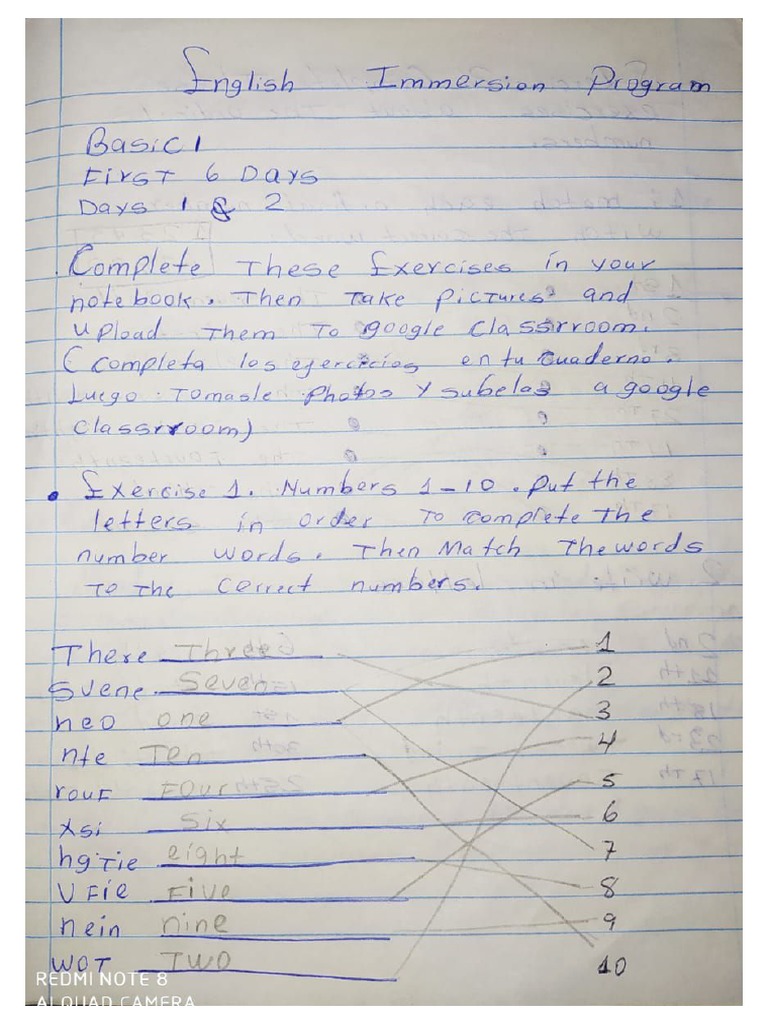 English Immersion Program
Basic 1
First 6 Days
Days 1 & 2
Complete These Exercises in your
notebook. Then Take pictures and
upload Them To google classrroom.
(completa los ejercicios en tu cuaderno.
Luego Tomasle photos y subelas a google
classrroom)
• Exercise 1. Numbers 1-10. Put the
letters in order To complete The
number words. Then Match The words
To The correct numbers.
There Three 1
Svene Seven 2
neo one 3
nte Ten 4
rouf Four 5
xsi Six 6
hgTie eight 7
VFie Five 8
nein nine 9
WOT TWO 10
REDMI NOTE 8
AI QUAD CAMERA